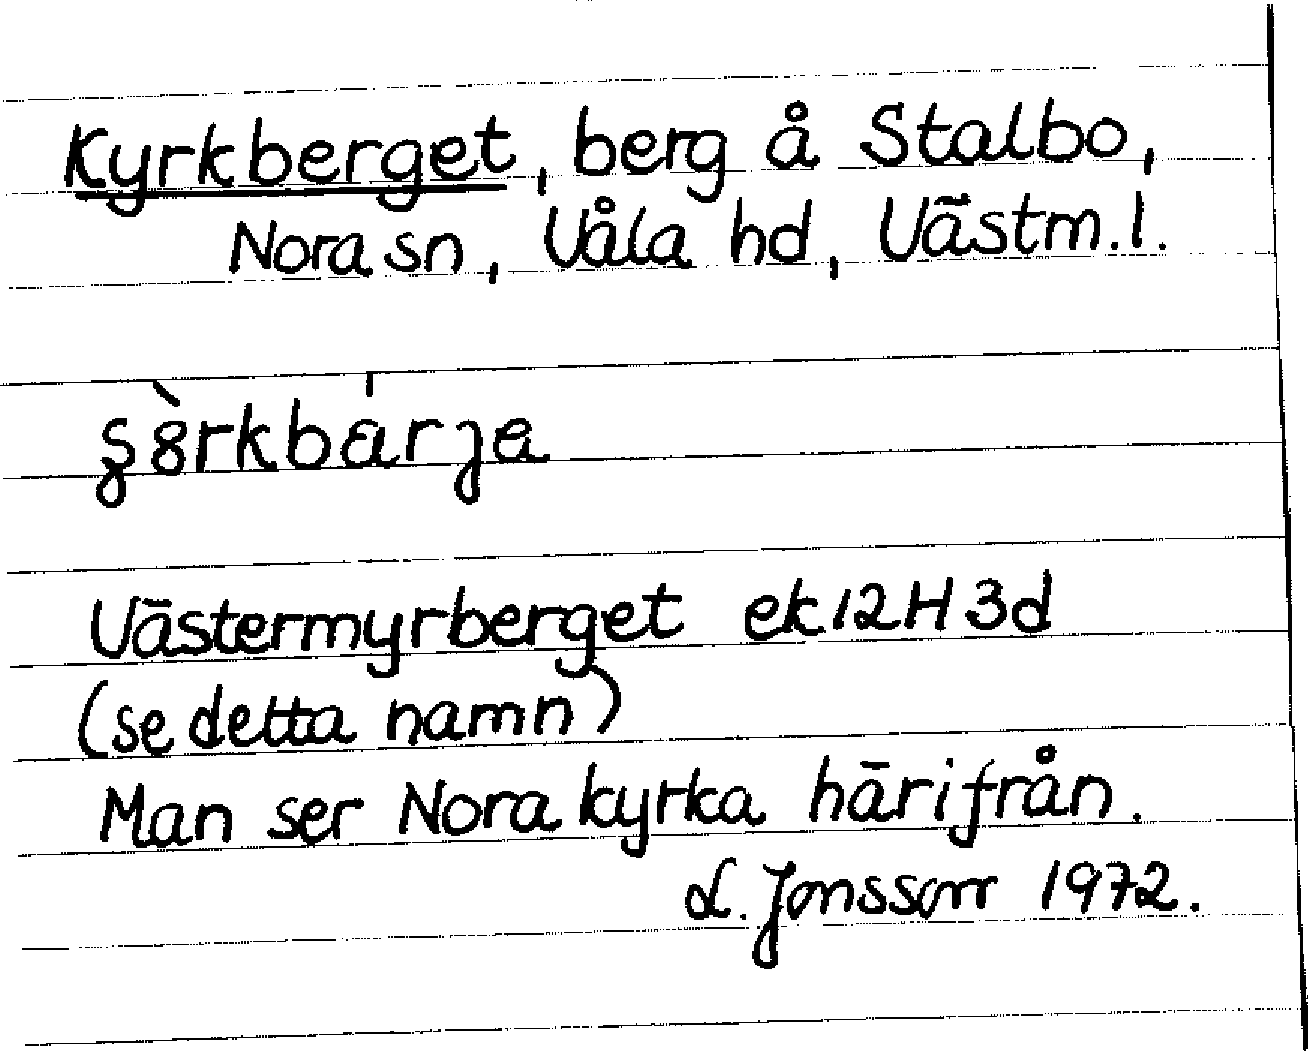 Kyrkberget, berg å Stalbo,
Nora sn, Våla hd, Västm. l.
Västermyrberget ek 12H 3d
(se detta namn)
Man ser Nora kyrka härifrån.
L. Jonsson 1972.